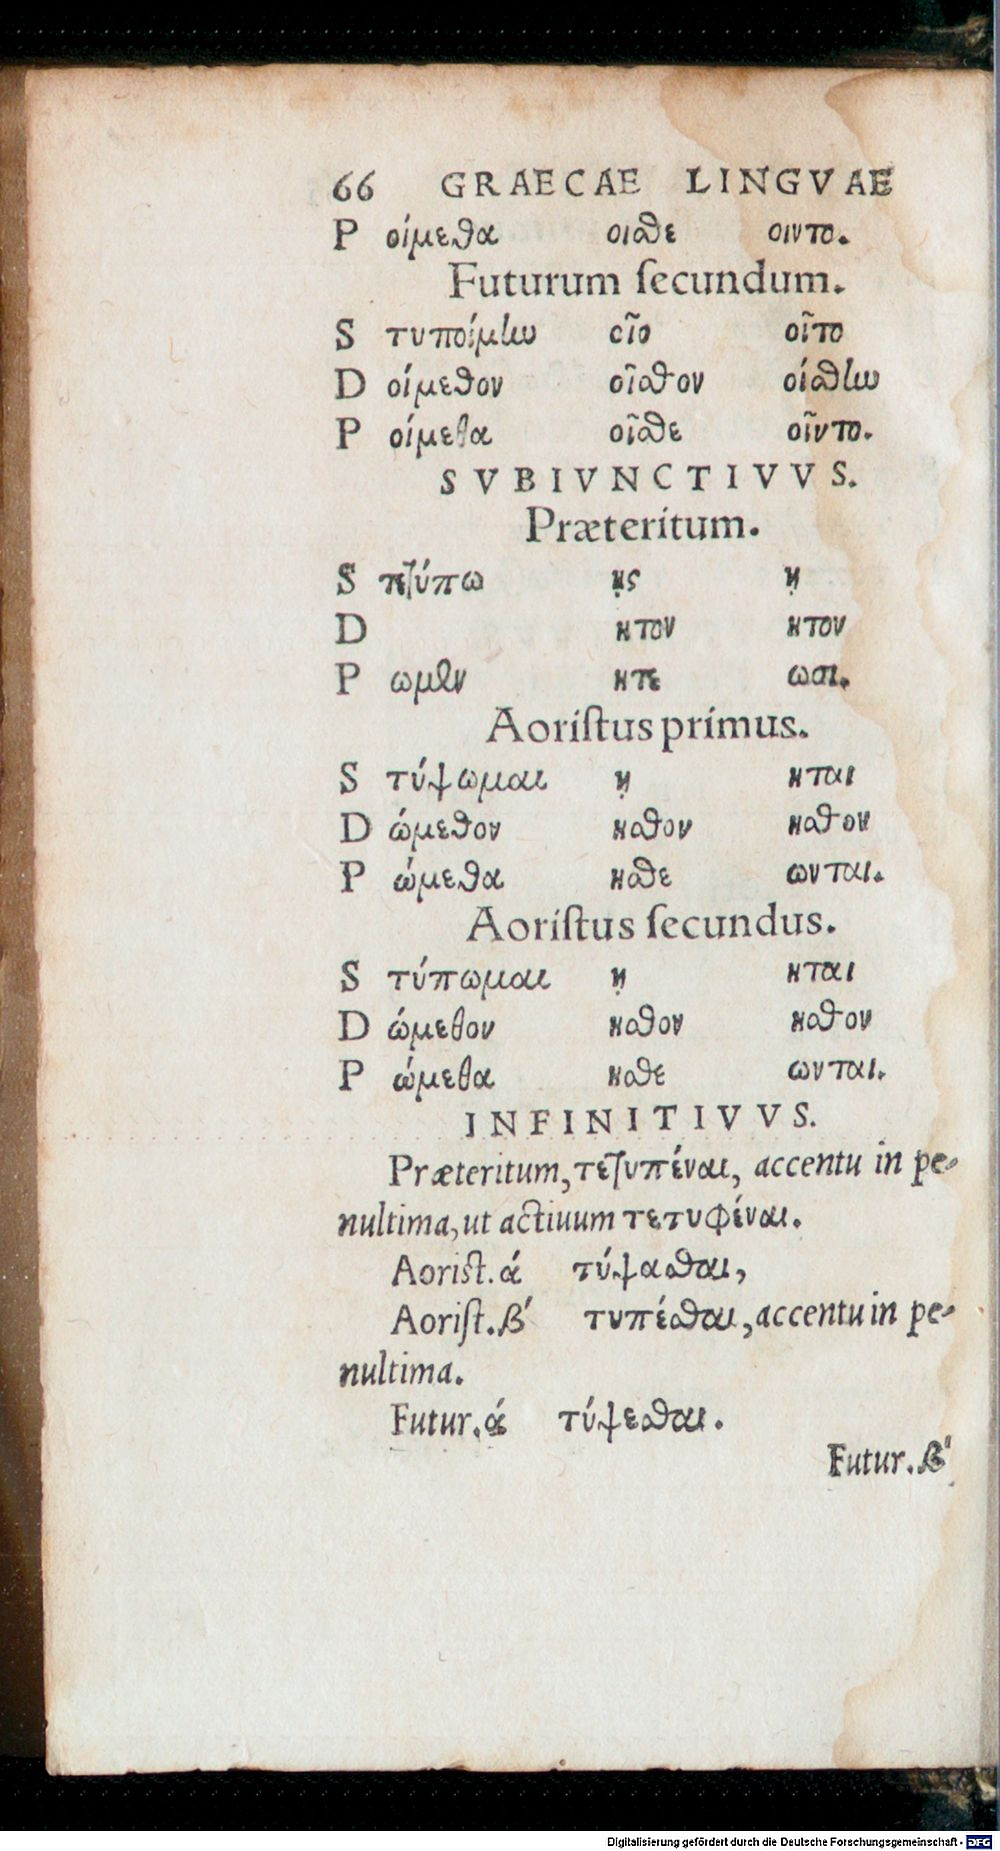 66 GRAECAE LINGVAE
P οίμεθα οισθε οιντο.
Futurum ſecundum.
S τυποίμην οῖο οῖτο
D οίμεθον οῖσθον οίσθην
P οίμεθα οῖσθε οῖντο.
SVBIVNCTIVVS.
Præteritum.
S τετύπω ῃς ῃ
D ητον ητον
P ωμεν ητε ωσι.
Aoriſtus primus.
S τύψωμαι ῃ ηται
D ώμεθον ησθον ησθον
P ώμεθα ησθε ωνται.
Aoriſtus ſecundus.
S τύπωμαι ῃ ηται
D ώμεθον ησθον ησθον
P ώμεθα ησθε ωνται.
INFINITIVVS.
Præteritum, τετυπέναι, accentu in pe-
nultima, ut actiuum τετυφέναι.
Aoriſt. ά τύψασθαι,
Aoriſt. β' τυπέσθαι, accentu in pe-
nultima.
Futur. ά τύψεσθαι.
Futur. β'
Digitalisierung gefördert durch die Deutsche Forschungsgemeinschaft - DFG